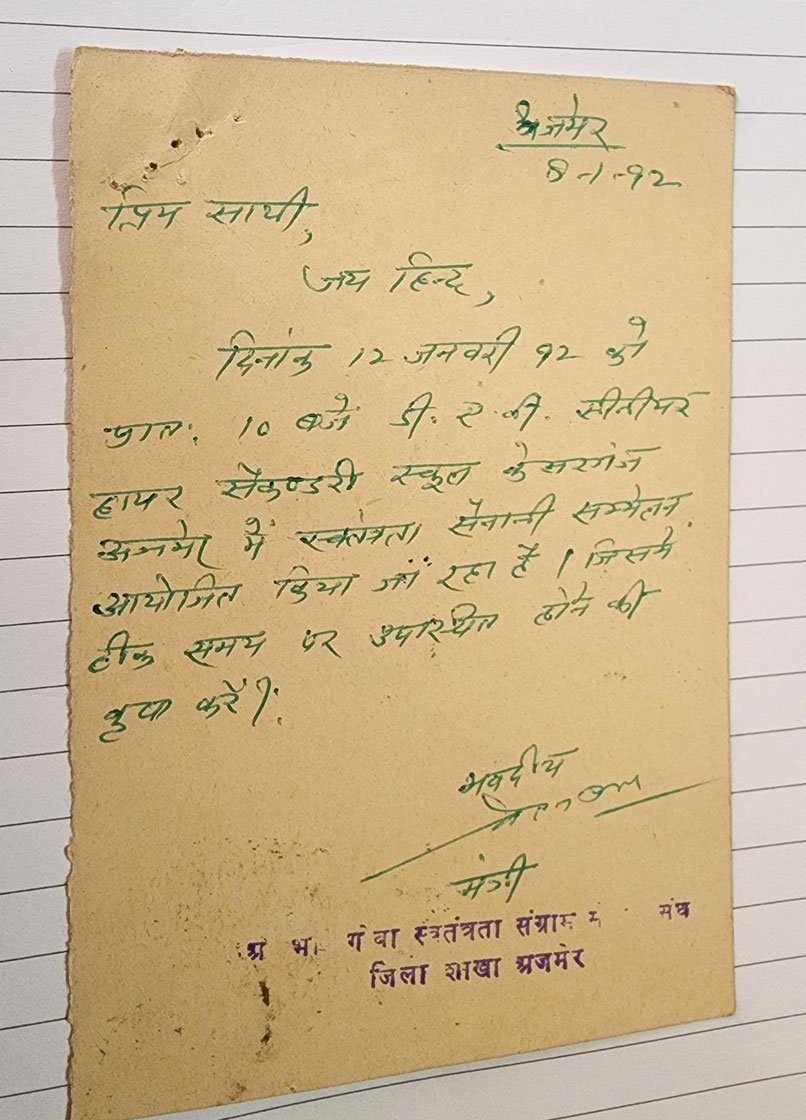 अजमेर
8-1-92
प्रिय साथी,
जय हिन्द,
दिनांक 12 जनवरी 92 को
प्रातः 10 बजे डी. ए. वी. सीनीयर
हायर सैकण्डरी स्कूल केसरगंज
अजमेर में स्वतंत्रता सैनानी सम्मेलन
आयोजित किया जा रहा है। जिसमें
ठीक समय पर उपस्थित होने की
कृपा करें।
भवदीय
मंत्री
अ भा गोवा स्वतंत्रता संग्राम संघ
जिला शाखा अजमेर